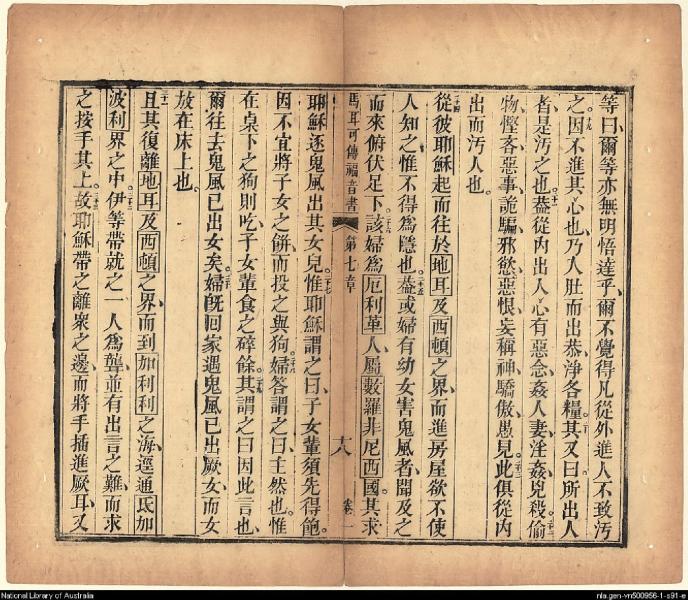 等曰爾等亦無明悟達乎爾不覺得凡從外進人不致污
之十九因不進其心也乃入肚而出恭淨各糧其二十又曰所出人
者是污之也二十一蓋從內出人心有惡念姦人妻淫姦兇殺偷二十二
物慳吝惡事詭騙邪慾惡恨妄稱神驕傲愚見二十三此俱從內
出而汚人也
二十四從彼耶穌起而往於地耳及西頓之界而進房屋欲不使
人知之惟不得為隱也二十五蓋或婦有幼女害鬼風者聞及之
而來俯伏足下二十六該婦為厄利革人屬數羅非尼西國其求
馬耳可傳福音書 第七章 十八 卷一
耶穌逐鬼風出其女兒二十七惟耶穌謂之曰子女輩須先得飽
因不宜將子女之餅而投之與狗二十八婦答謂之曰主然也惟
在桌下之狗則吃子女輩食之碎餘二十九其謂之曰因此言也
爾往去鬼風已出女矣三十婦既回家遇鬼風已出厥女而女
放在床上也
三十一且其復離地耳及西頓之界而到加利利之海逕通氐加
波利界之中三十二伊等帶就之一人為聾並有出言之難而求
之按手其上三十三故耶穌帶之離眾之邊而將手插進厥耳又
National Library of Australia
nla.gen-vn500956-1-s91-e